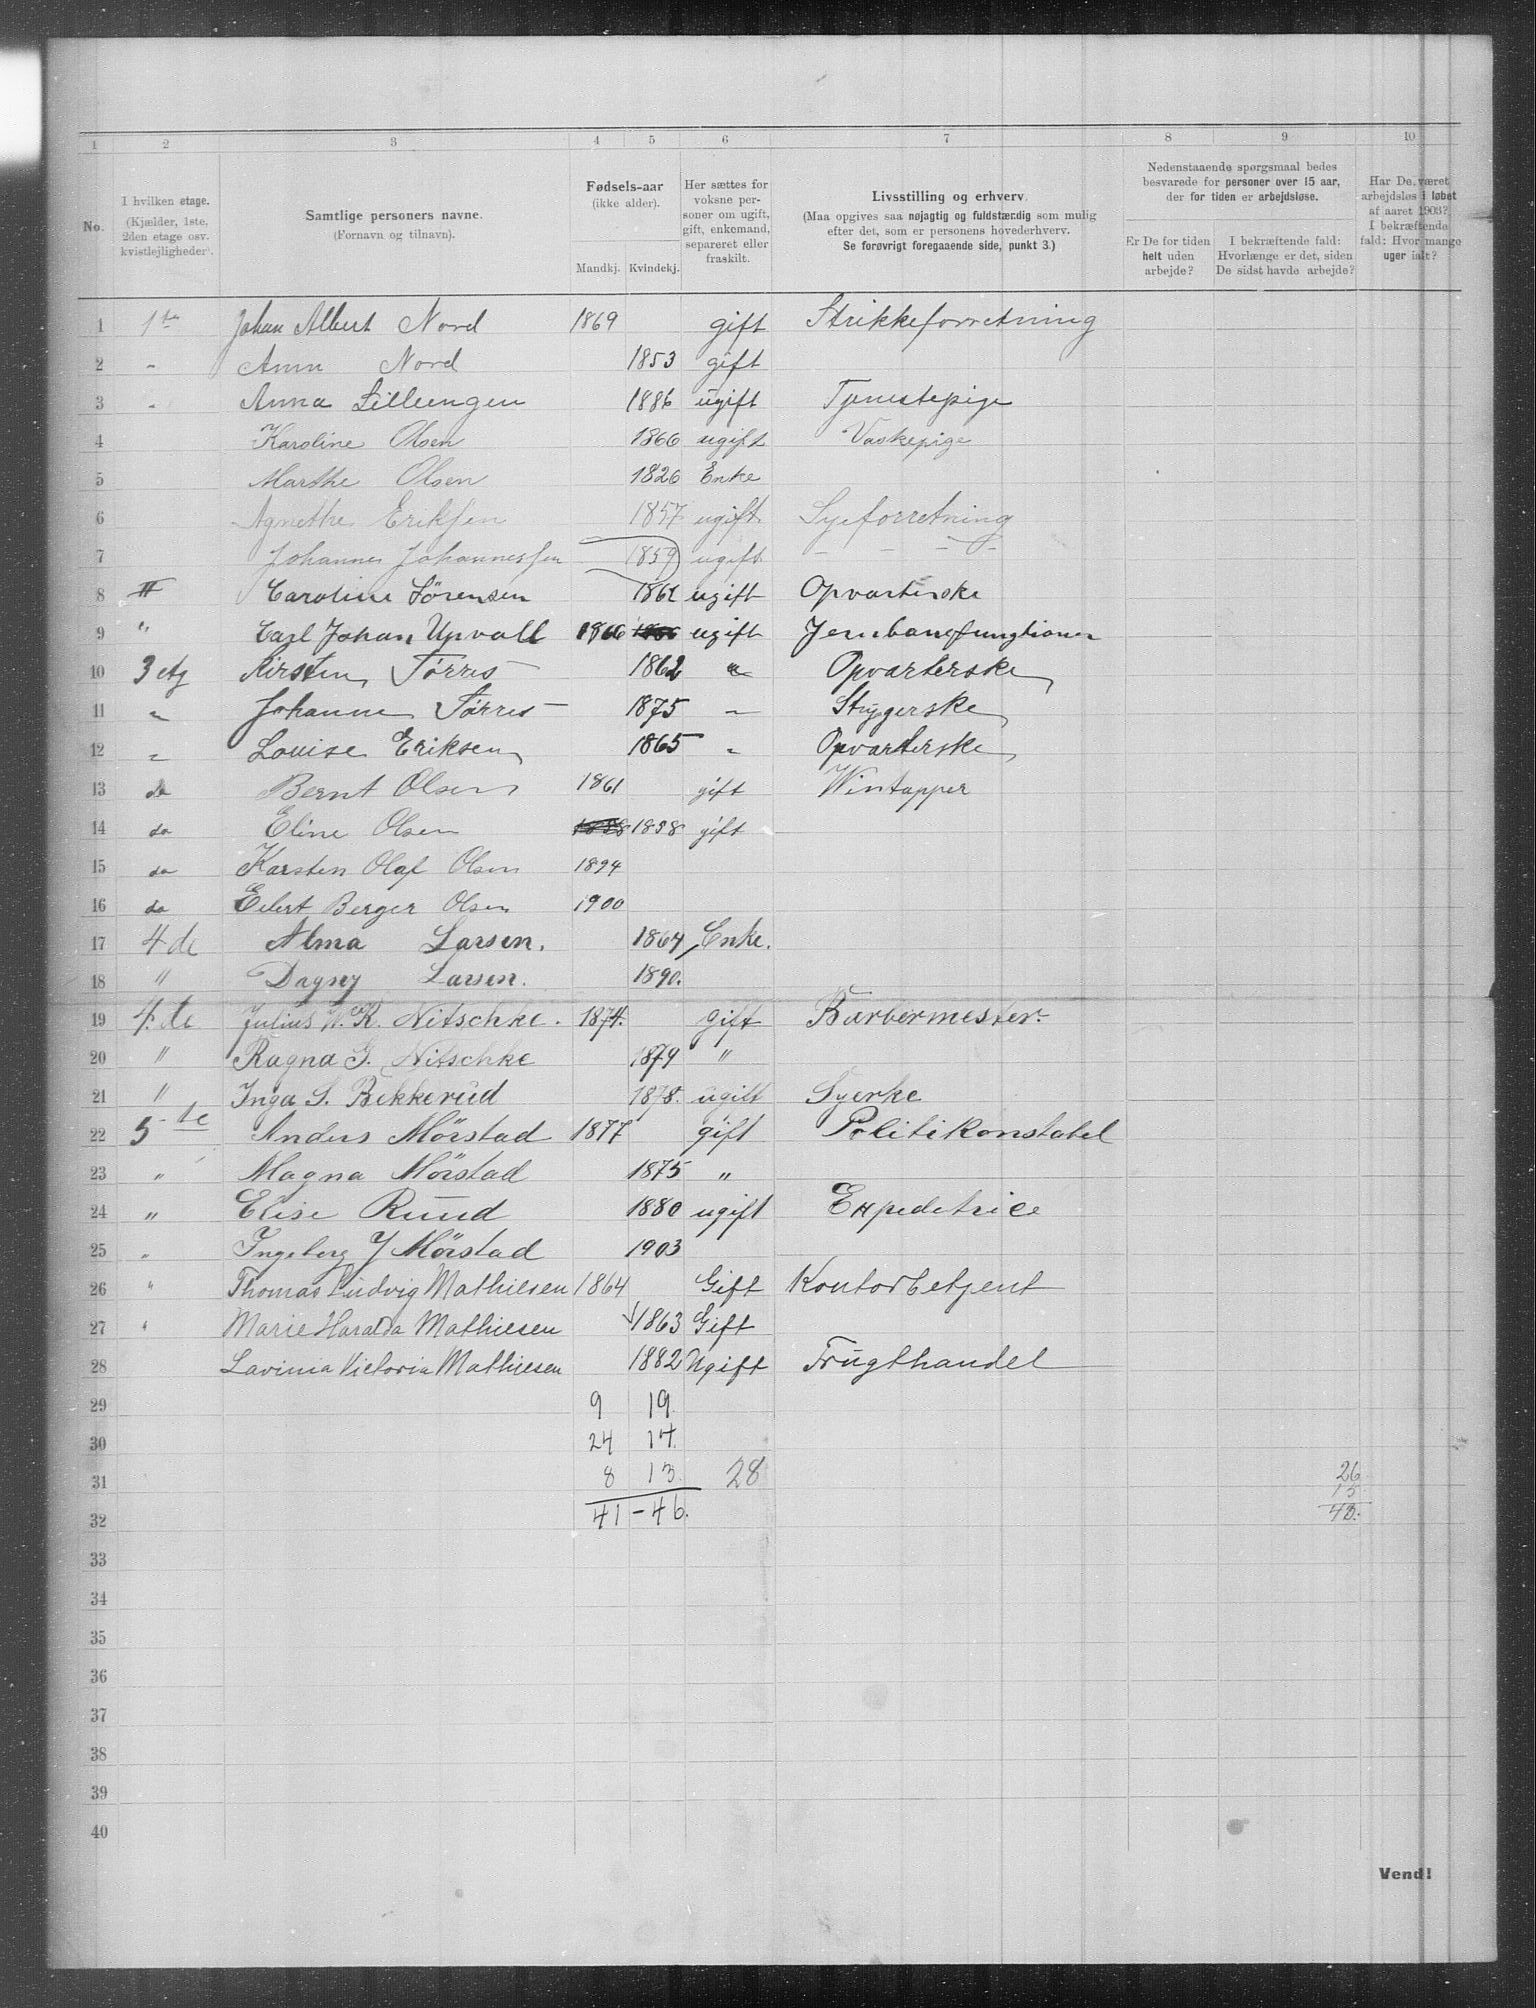 1 2 3 4 5 6 7 8 9 10
No.
I hvilken etage.
(Kjælder, 1ste,
2den etage osv.
kvistlejligheder).
Samtlige personers navne.
(Fornavn og tilnavn).
Fødsels-aar
(ikke alder).
Mandkj. Kvindekj.
Her sættes for
voksne per-
soner om ugift,
gift, enkemand,
separeret eller
fraskilt.
Livsstilling og erhverv.
(Maa opgives saa nøjagtig og fuldstændig som mulig
efter det, som er personens hovederhverv.
Se forøvrigt foregaaende side, punkt 3.)
Nedenstaaende spørgsmaal bedes
besvarede for personer over 15 aar,
der for tiden er arbejdsløse.
Er De for tiden
helt uden
arbejde?
I bekræftende fald:
Hvorlænge er det, siden
De sidst havde arbejde?
Har De været
arbejdsløs i løbet
af aaret 1903?
I bekræftende
fald: Hvor mange
uger ialt?
1 1ste Johan Albert Nord 1869 gift Strikkeforretning
2 " Anna Nord 1853 gift
3 " Anna Lilleengen 1886 ugift Tjenestepige
4 Karoline Olsen 1866 ugift Vaskepige
5 Marthe Olsen 1826 Enke
6 Agnethe Eriksen 1857 ugift Syeforretning
7 Johannes Johannessen 1859 ugift – – – –
8 II Caroline Sörensen 1861 ugift Opvarterske
9 " Carl Johan Upvall 1866 ugift Jernbanefungtionær
10 3 etg Kirsten Törres 1862 " Opvarterske
11 " Johanne Törres 1875 " Strygerske
12 " Louise Eriksen 1865 " Opvarterske
13 do Bernt Olsen 1861 gift Wintapper
14 do Eline Olsen 1858 gift
15 do Karsten Olaf Olsen 1894
16 do Eilert Berger Olsen 1900
17 4 de Alma Larsen. 1864 Enke.
18 " Dagny Larsen. 1890.
19 4. de Julius W. K. Nitschke. 1874. gift Barbermester.
20 " Ragna G. Nitschke 1879 "
21 " Inga S. Bekkerud 1878. ugift Syerke
22 5-te Anders Mörstad 1877 gift Politikonstabel
23 " Magna Mörstad 1875 "
24 " Elise Ruud 1880 ugift Expeditrice
25 " Ingeborg J Mörstad 1903
26 " Thomas Ludvig Mathiesen 1864 Gift Kontorbetjent
27 " Marie Haralda Mathiesen 1863 Gift
28 Lavinia Victoria Mathiesen 1882 Ugift Frugthandel
29 9 19.
30 24 14.
31 8 13. 28 26
15
32 41 – 46. 43.
33
34
35
36
37
38
39
40
Vend!